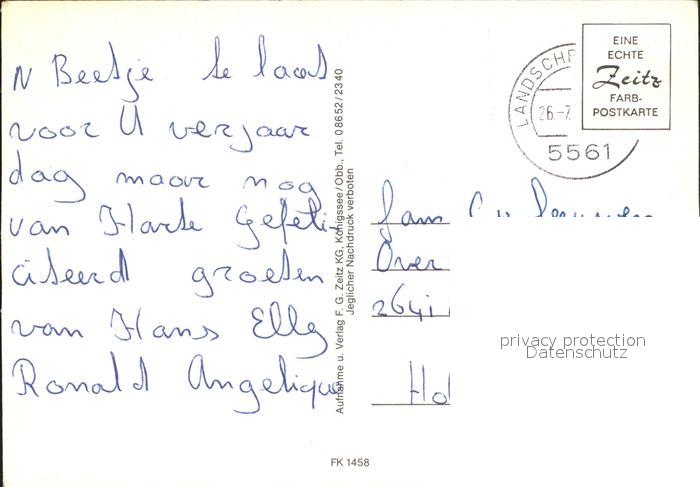 N Beetje te laat
voor U verjaar
dag maar nog
van Harte Gefeli-
citeerd groeten
van Hans Elly
Ronald Angelique
Aufnahme u. Verlag F. G. Zeitz KG, Königssee/Obb., Tel. 08652/2340
Jeglicher Nachdruck verboten
LANDSCHE
26.-7.
5561
EINE
ECHTE
Zeitz
FARB-
POSTKARTE
Fam
Over
Hol
privacy protection
Datenschutz
FK 1458